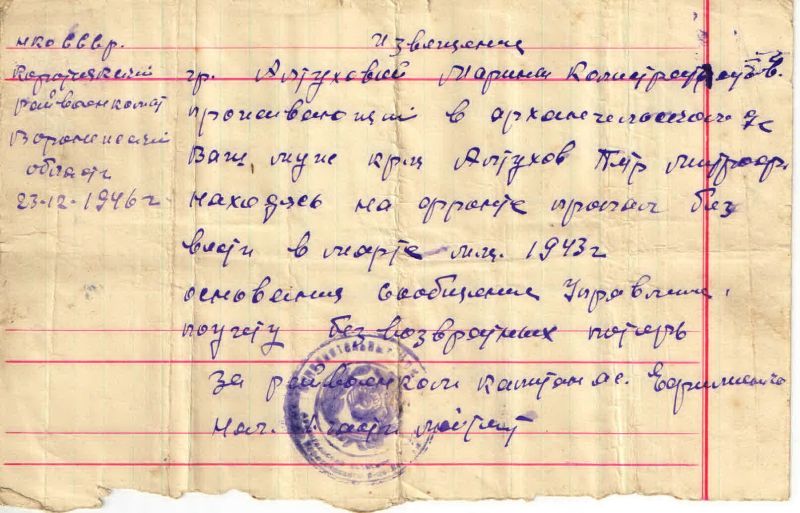 НКО СССР.
Коротоякский
райвоенкомат
Воронежской
области
23-12-1946 г
Извещение
гр. Алтуховой Марине
проживающий в архангельском
Ваш муж кр-ц Алтухов Птр Митроф.
находясь на фронте пропал без
вести в марте м-ц. 1943 г
основания сообщения Управлен.
по учету безвозвратных потерь
За райвоенком капитан ас.
нач. части